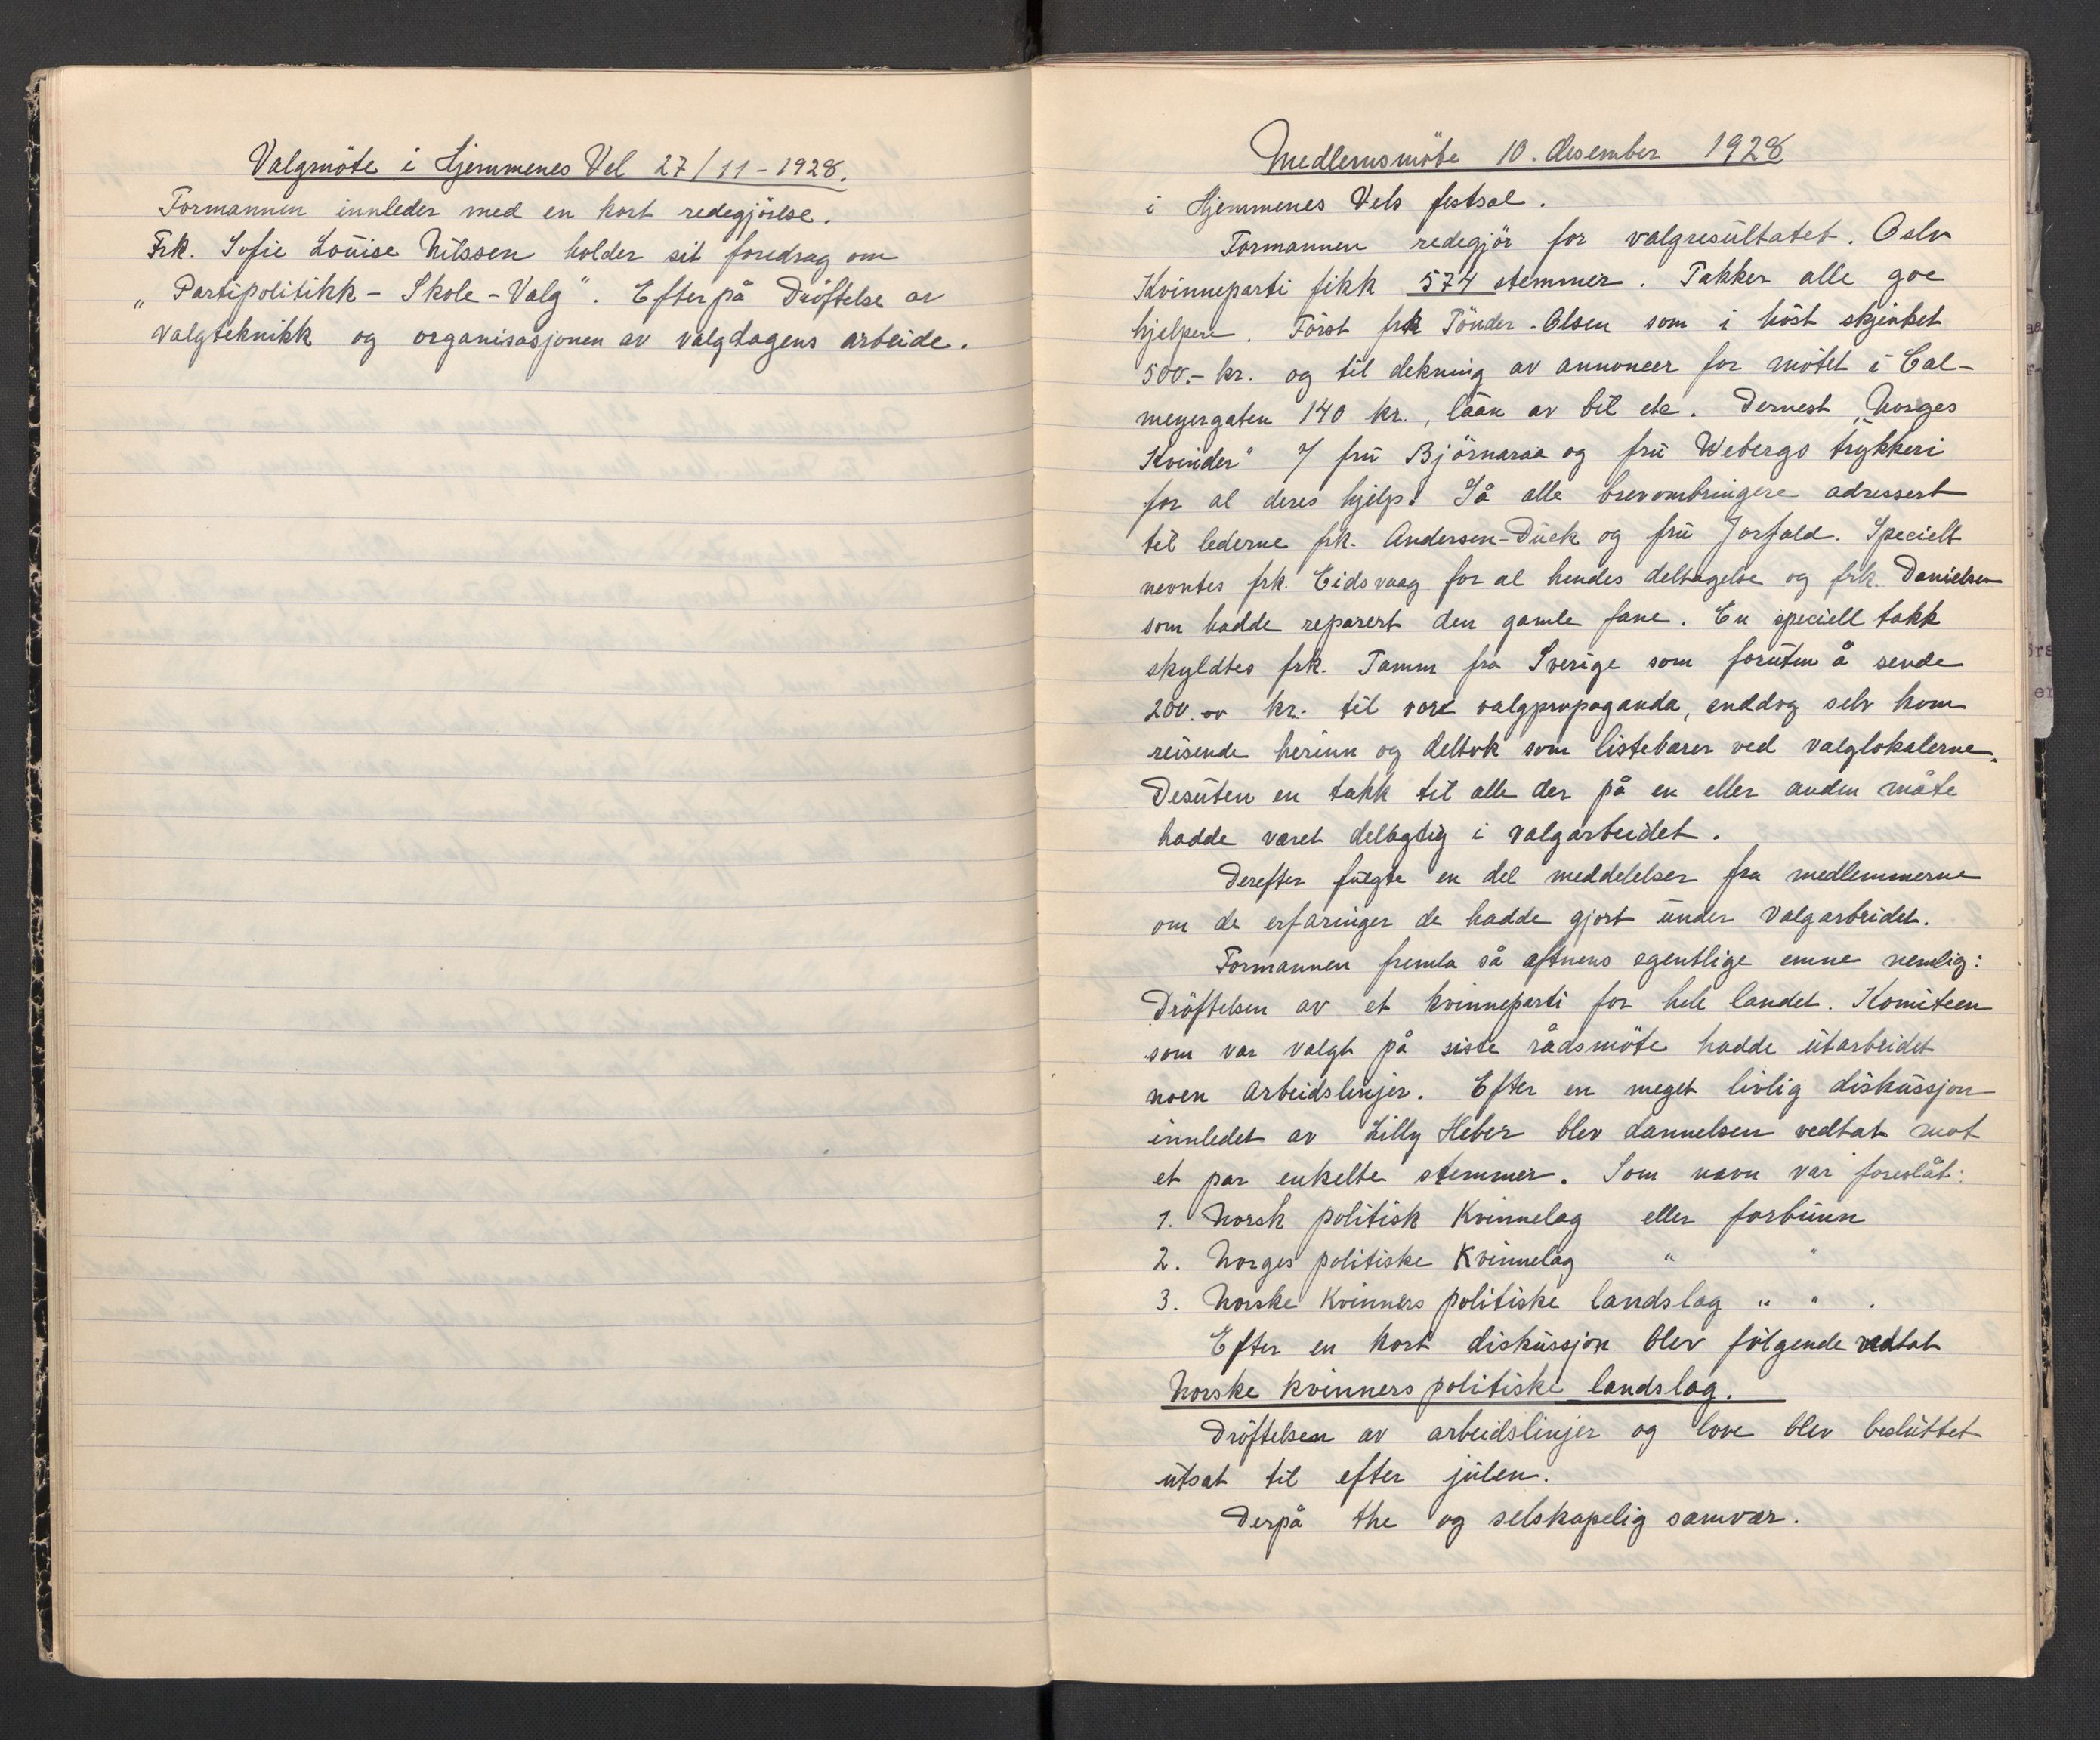 Valgmöte i Hjemmenes Vel 27/11-1928.
Formannen innleder med en kort redegjörelse.
Frk. Sofie Louise Nilssen holder sit foredrag om
„Partipolitikk - Skole - Valg". Efterpå Dröftelse av
valgteknikk og organisasjonen av valgdagens arbeide.
Medlemsmöte 10. desember 1928
i Hjemmenes Vels festsal.
Formannen redegjör for valgresultatet. Oslo
Kvinneparti fikk 574 stemmer. Takker alle goe
hjelpere. Först frk Tönder-Olsen som i höst skjenket
500.- kr. og til dekning av annoncer for mötet i Cal-
meyergaten 140 kr., låån av bil etc. Dernest „Norges
Kvinder" v/ fru Björnaraa og fru Webergs trykkeri
for al deres hjelp. Så alle brevombringere adressert
til lederne frk. Andersen-Dück og fru Jorfald. Specielt
nevntes frk. Eidsvaag for al hendes deltagelse og frk. Danielsen
som hadde reparert den gamle fane. En speciell takk
skyldtes frk. Tamm fra Sverige som foruten å sende
200.00 kr. til vore valgpropaganda, enddog selv kom
reisende herinn og deltok som listebærer ved valglokalerne.
Desuten en takk til alle der på en eller anden måte
hadde været delagtig i valgarbeidet.
Derefter fulgte en del meddelelser fra medlemmerne
om de erfaringer de hadde gjort under valgarbeidet.
Formannen fremla så aftnens egentlige emne nemlig:
Dröftelsen av et kvinneparti for hele landet. Komiteen
som var valgt på siste rådsmöte hadde utarbeidet
noen arbeidslinjer. Efter en meget livlig diskussjon
innledet av Lilly Heber blev dannelsen vedtat mot
et par enkelte stemmer. Som navn var foreslåt:
1. Norsk politisk Kvinnelag eller forbunn
2. Norges politiske Kvinnelag " "
3. Norske Kvinners politiske landslag " " .
Efter en kort diskussjon blev fölgende vedtat
Norske kvinners politiske landslag.
Dröftelsen av arbeidslinjer og love blev besluttet
utsat til efter julen.
Derpå the og selskapelig samvær.